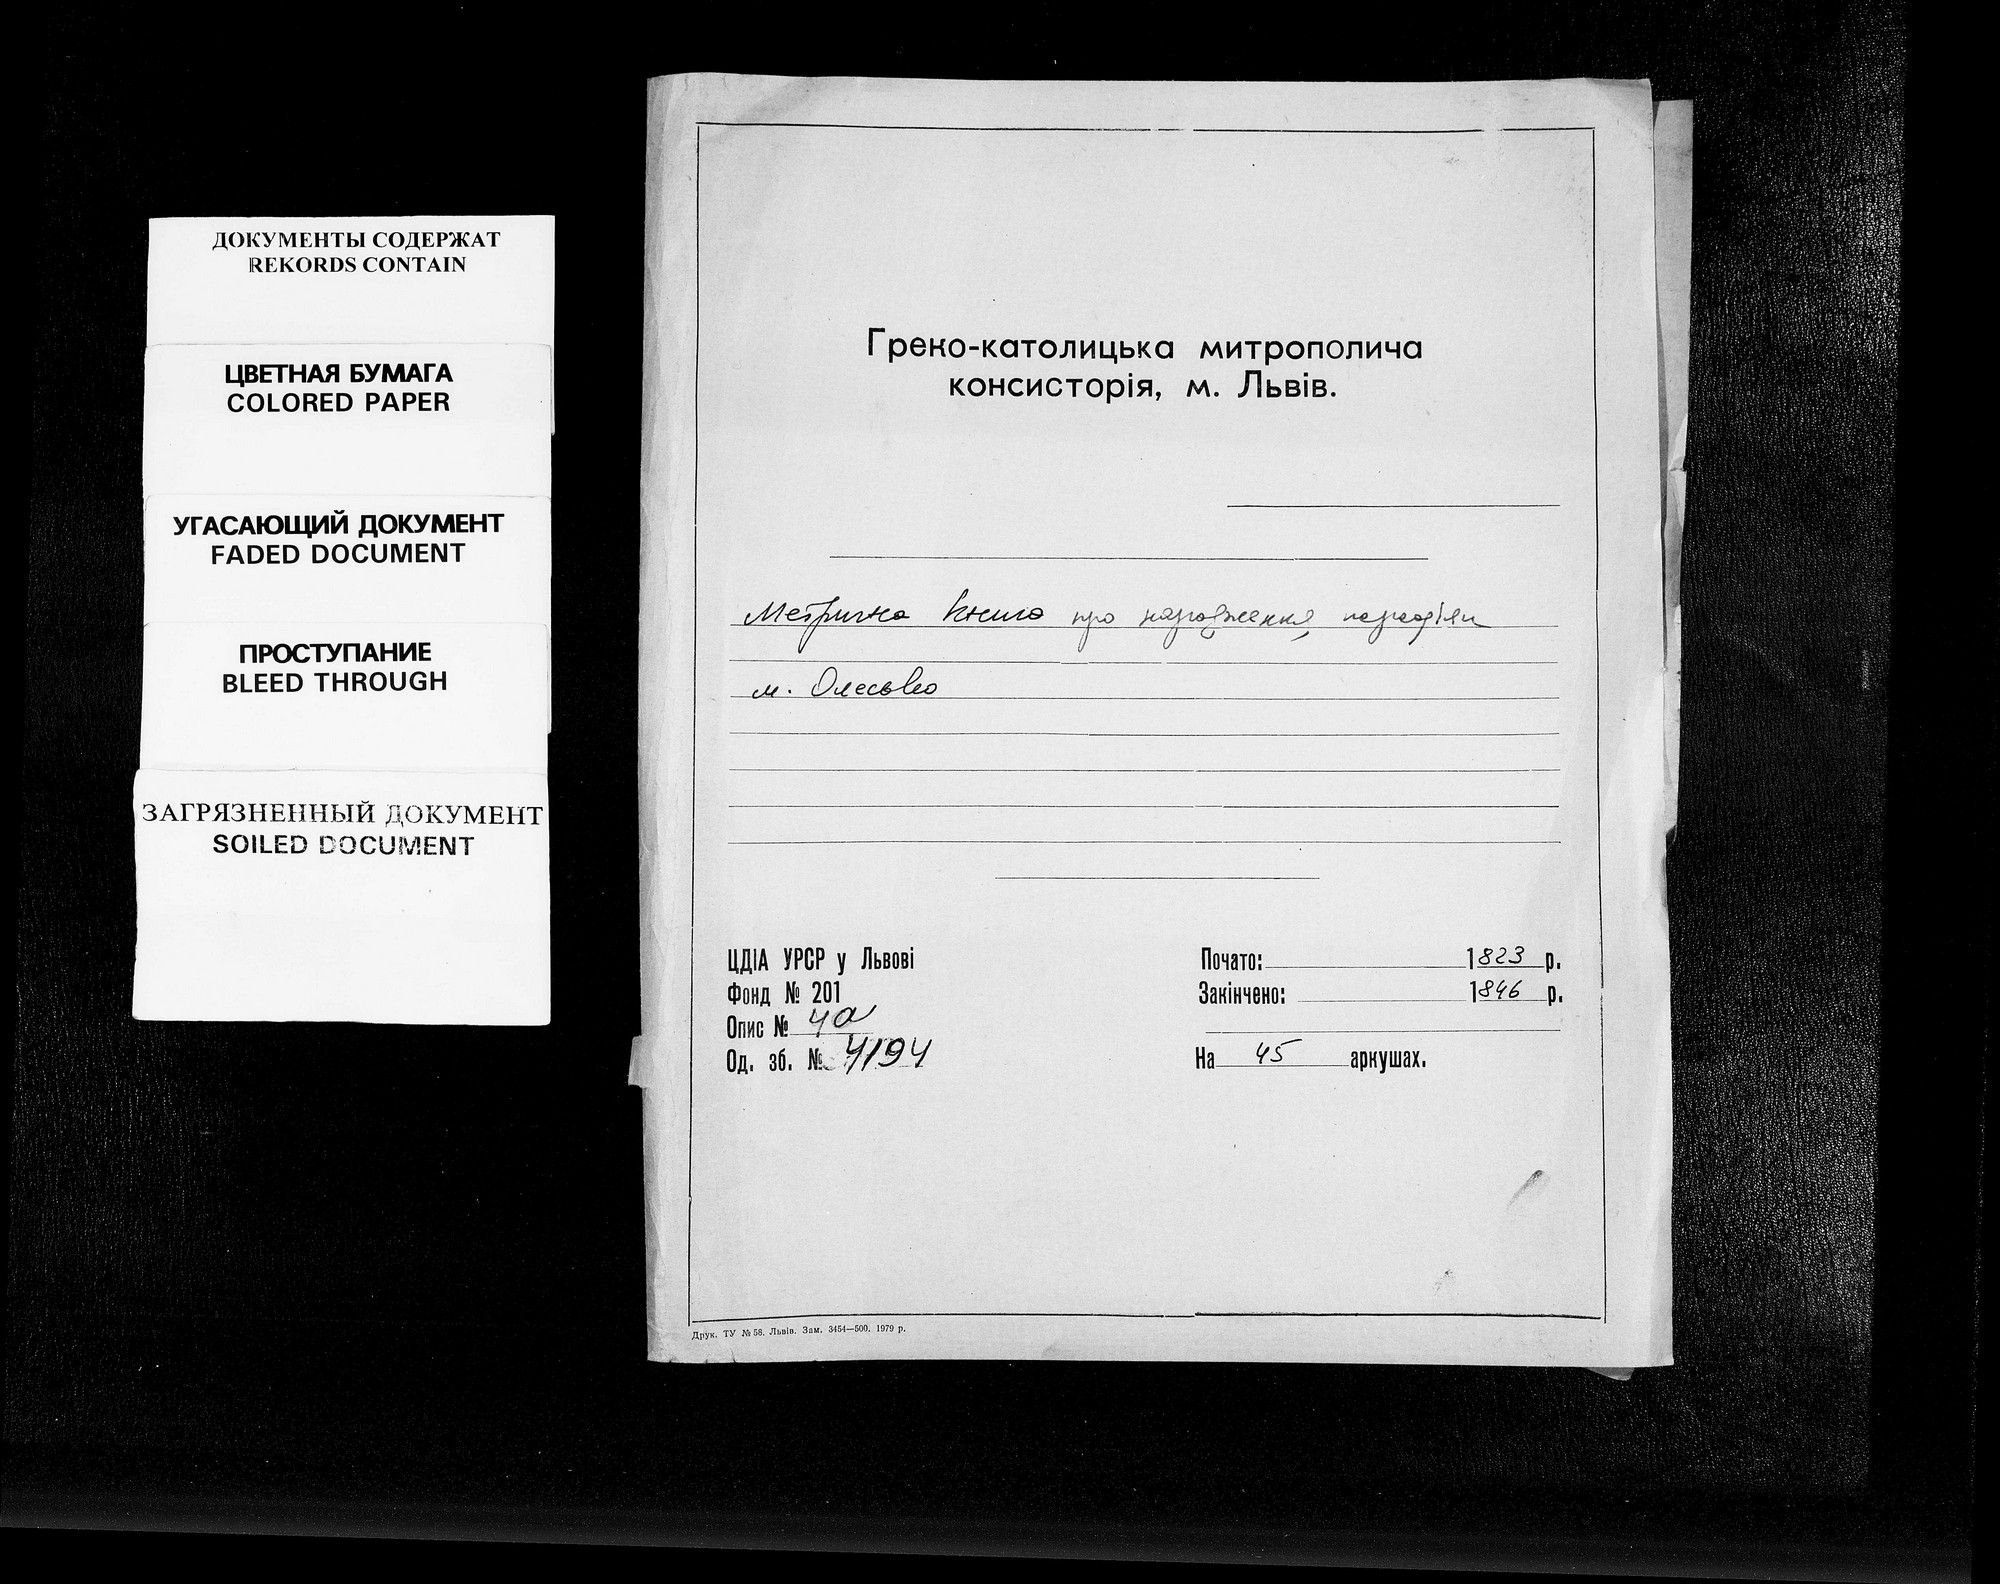 ДОКУМЕНТЫ СОДЕРЖАТ
REKORDS CONTAIN
ЦВЕТНАЯ БУМАГА
COLORED PAPER
УГАСАЮЩИЙ ДОКУМЕНТ
FADED DOCUMENT
ПРОСТУПАНИЕ
BLEED THROUGH
ЗАГРЯЗНЕННЫЙ ДОКУМЕНТ
SOILED DOCUMENT
Греко-католицька митрополича
консисторія, м. Львів.
Метрична книга про народження парафіян
м. Олесько
ЦДІА УРСР у Львові
Фонд № 201
Опис № 4а
Од. зб. № 4194
Почато: 1823 р.
Закінчено: 1846 р.
На 45 аркушах.
Друк. ТУ № 58. Львів. Зам. 3454—500. 1979 р.